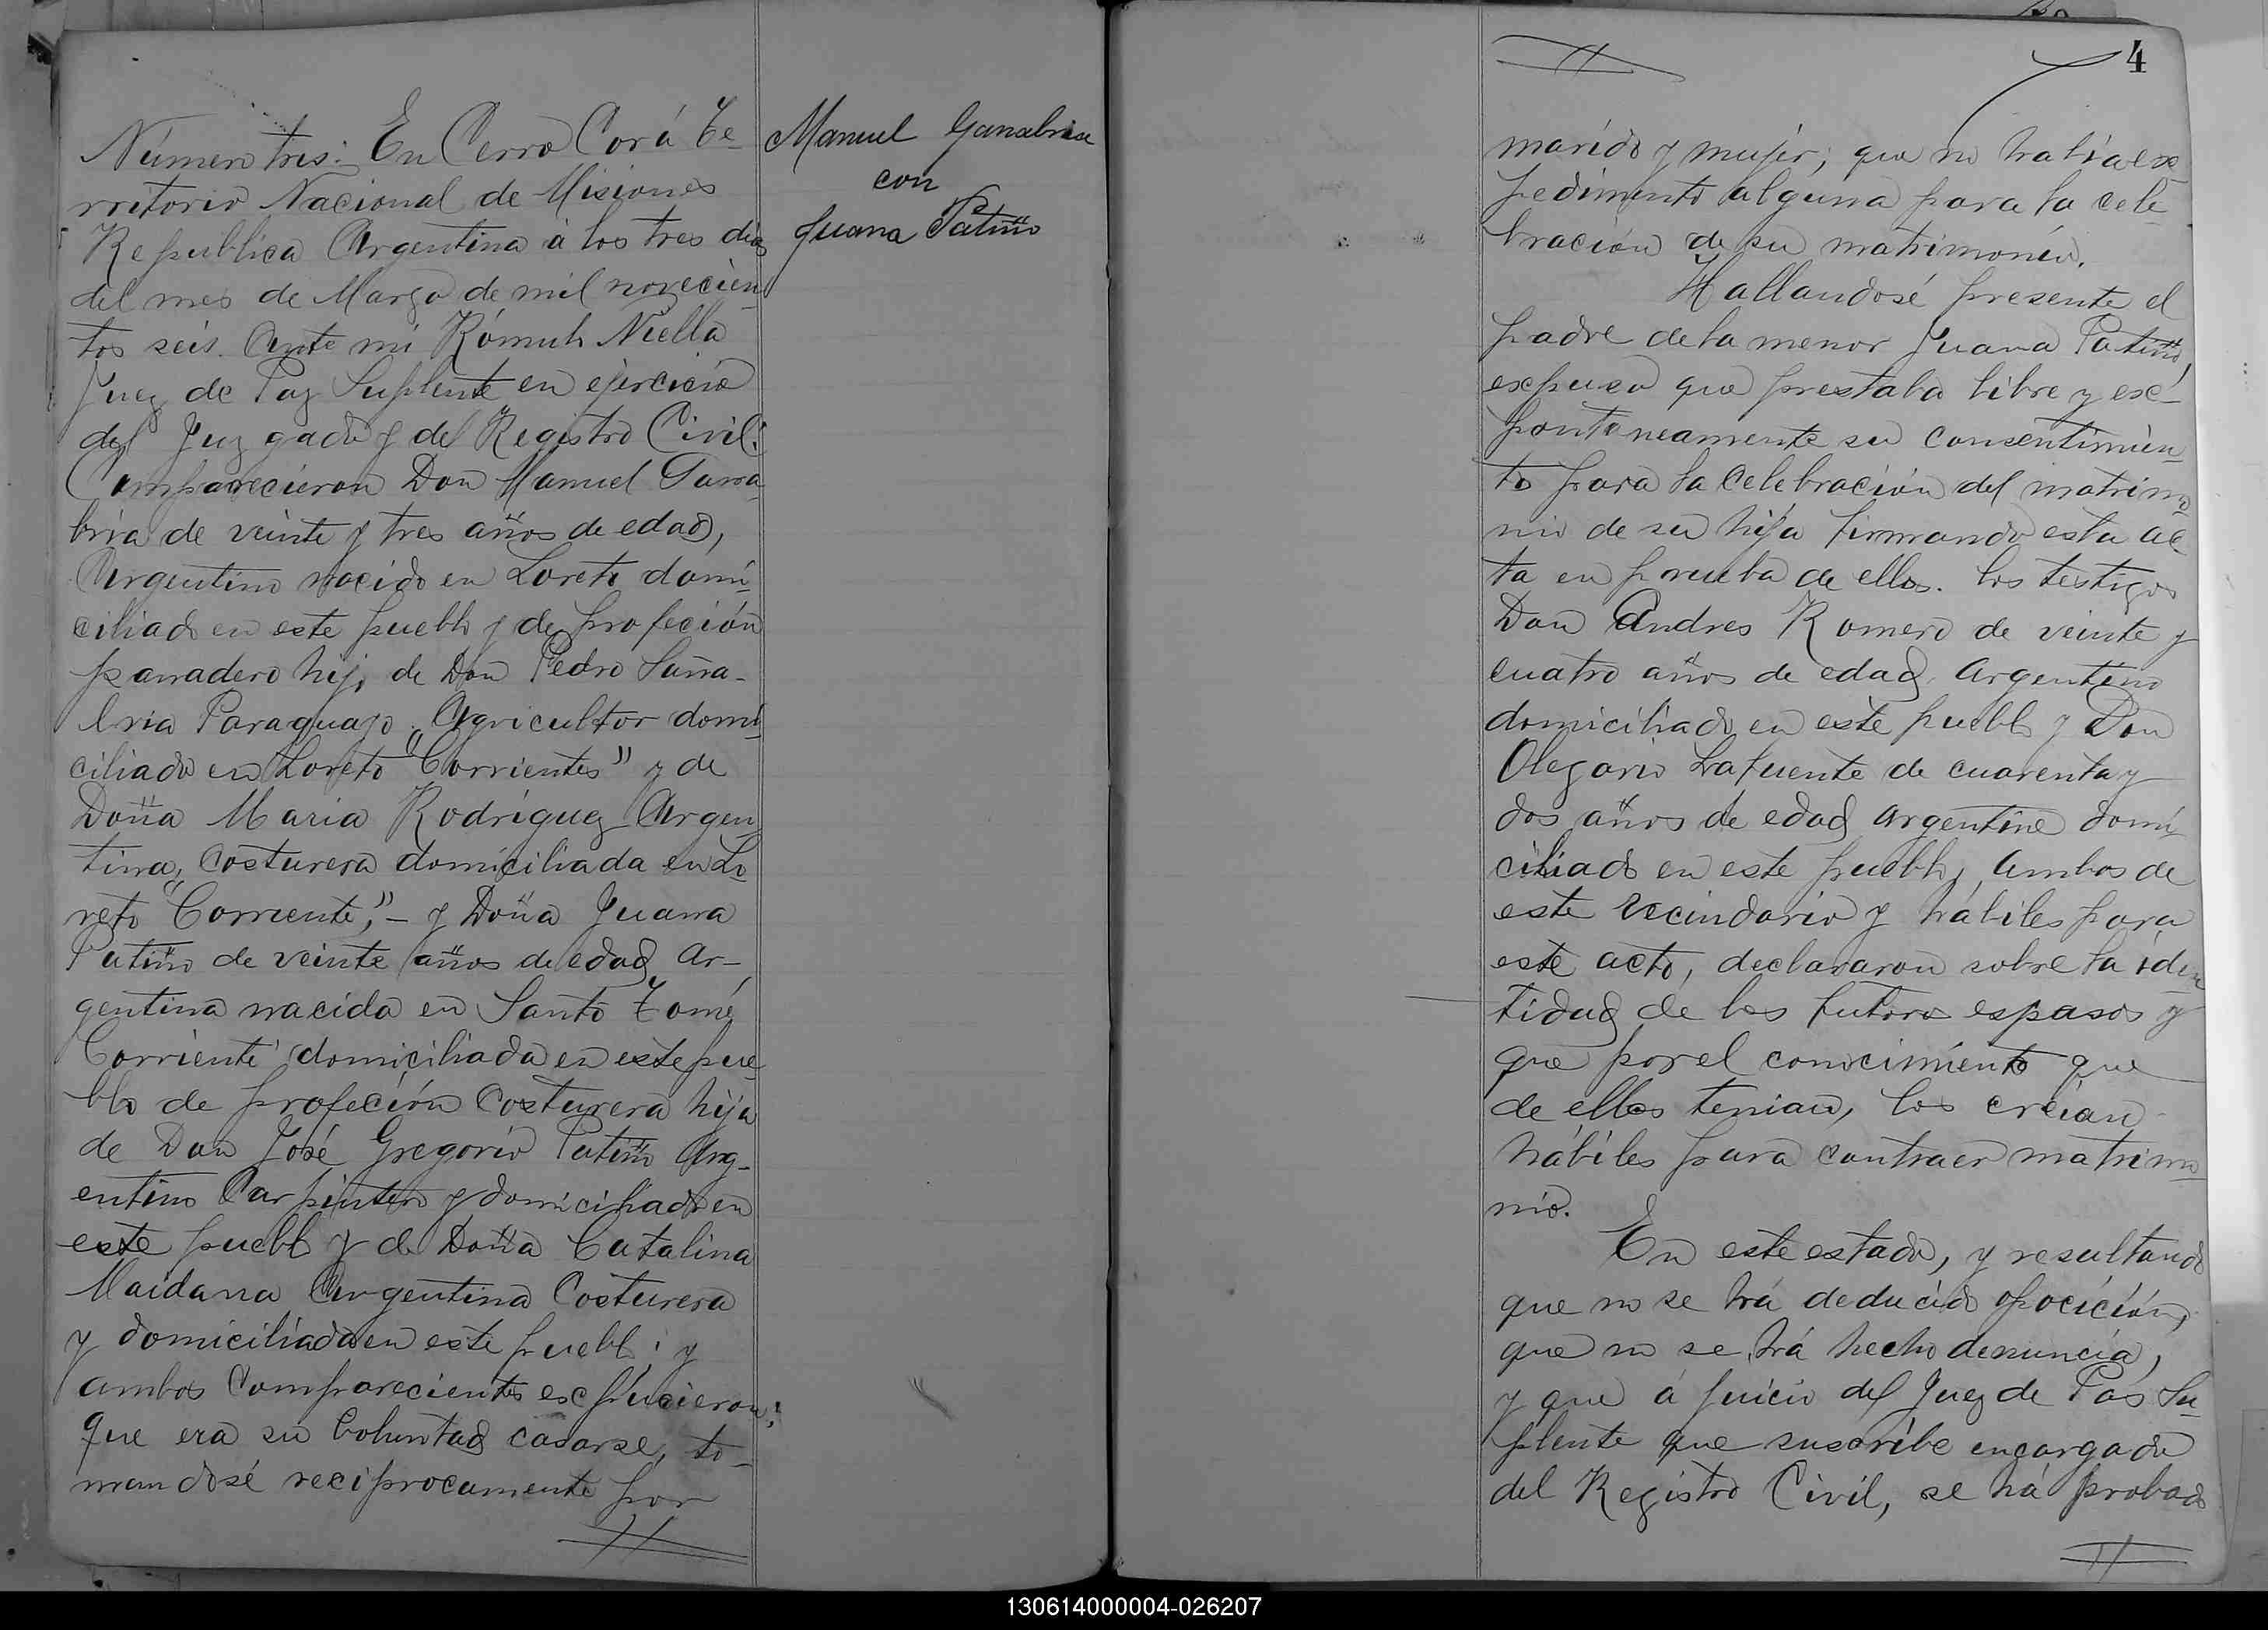 Número tres: En Cerro Corá Te-
rritorio Nacional de Misiones
República Argentina á los tres dias
del mes de Marzo de mil novecien-
tos seis. Ante mi Rómulo Niella
Juez de Paz Suplente en ejercicio
del Juzgado y del Registro Civil:
Comparecieron Don Manuel Sana-
bria de veinte y tres años de edad,
Argentino nacido en Loreto domi-
ciliado en este pueblo y de profeción
panadero hijo de Don Pedro Sana-
bria Paraguayo, Agricultor domi-
ciliado en Loreto "Corrientes" y de
Doña Maria Rodríguez Argen-
tina, Costurera domiciliada en Lo-
reto "Corriente,"- y Doña Juana
Patiño de veinte años de edad, ar-
gentina nacida en Santo Tomé
Corriente domiciliada en este pue-
blo de profeción Costurera hija
de Don José Gregorio Patiño Arg-
entino Carpintero y domiciliado en
este pueblo y de Doña Catalina
Maidana Argentina Costurera
y domiciliada en este pueblo; y
ambos Comparecientes excpucieron:
que era su boluntad casarse, to-
mandosé reciprocamente por
Manuel Sanabria
con
Juana Patiño
4
marido y mujer; que no habia ex-
pedimento alguna para la cele-
bración de su matrimonio.
Hallandosé presente el
padre de la menor Juana Patiño,
expuso que prestaba libre y esc-
pontaneamente su Consentimien-
to para la Celebración del matrimo-
nio de su hija firmando esta ac-
ta en prueba de ellos. los testigos
Don Andres Romero de veinte y
cuatro años de edad, argentino
domiciliado en este pueblo y Don
Olegario Lafuente de cuarenta y
dos años de edad argentino domi-
ciliado en este pueblo, Ambos de
este vecindario y hábiles para
este acto, declararon sobre la iden-
tidad de los futuros esposos y
que por el conocimiento que
de ellos tenian, los creian
hábiles para contraer matrimo-
nio.
En este estado, y resultando
que no se há deducido opocición,
que no se há hecho denuncia,
y que á juicio del Juez de Pas Su-
plente que suscribe encargado
del Registro Civil, se há probado
130614000004-026207